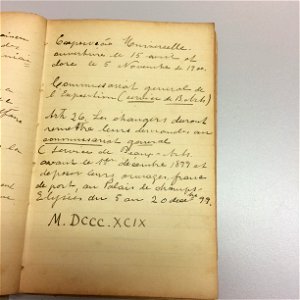 Exposição Universelle
ouverture le 15 avril et
close le 5 Novembre de 1900.
Commissariat general de
l'Exposition (service de B. Arts)
Art 26. Les etrangers devront
remettre leurs demandes au
commissariat general
(Service de Beaux-Arts
avant le 1er decembre 1899 et
deposer leurs ouvrages francs
de port, au Palais de champs-
Elysées du 5 au 20 decbre 99.
M.DCCC.XCIX